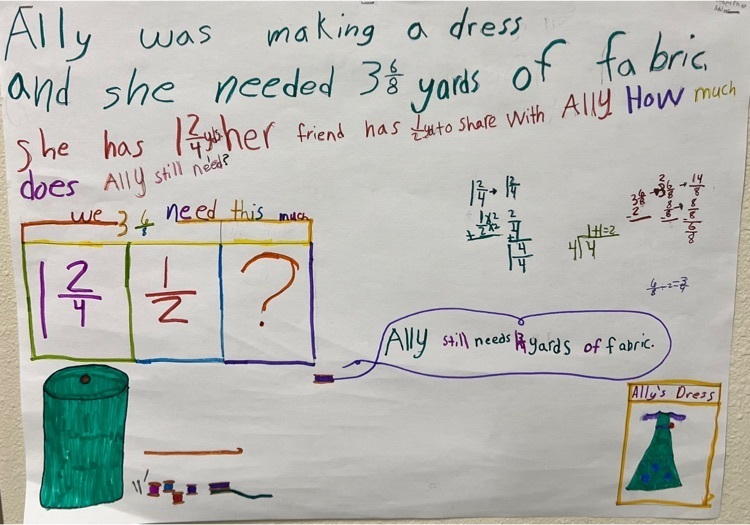 Ally was making a dress
and she needed 3 6/8 yards of fabric.
She has 1 2/4 yds her friend has 1/2 yd to share with Ally How much
does Ally still need?
we 3 6/8 need this much
1 2/4 1/2 ?
1 2/4 → 1 2/4
+ 1/2 x2 x2 2/4
1 4/4
1+1=2
4 4
3 6/8 → 2 3 6/8 → 14/8
2 8/8 → 8/8
6/8
6/8 ÷ 2 = 3/4
Ally still needs yards of fabric.
Ally's Dress